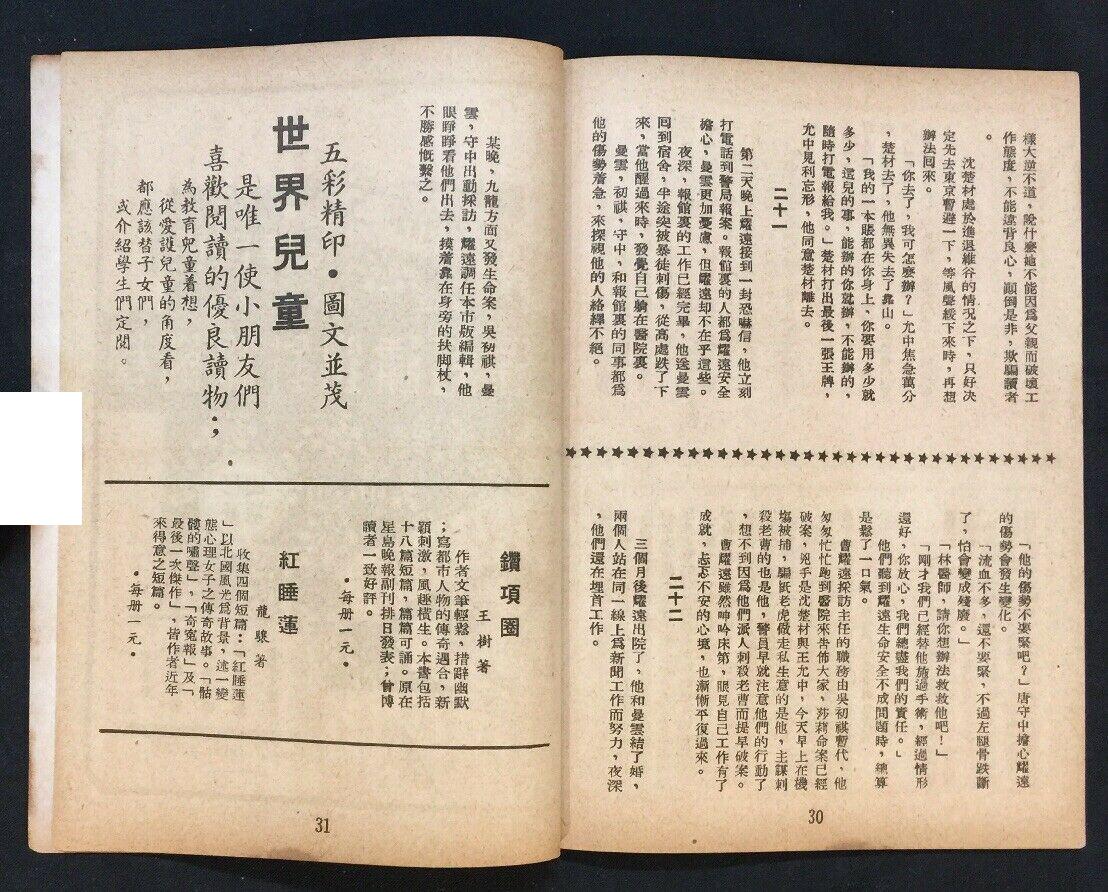 樣大逆不道,說什麼她不能因爲父親而破壞工
作態度,不能違背良心,顚倒是非,欺騙讀者
。
沈楚材處於進退維谷的情况之下,只好决
定先去東京暫避一下,等風聲緩下來時,再想
辦法囘來。
「你去了,我可怎麽辦?」允中焦急萬分
,楚材去了,他無異失去了靠山。
「我的一本賬都在你身上,你要用多少就
多少,這兒的事,能辦的你就辦,不能辦的,
隨時打電報給我。」楚材打出最後一張王牌,
允中見利忘形,他同意楚材離去。
二十一
第二天晚上耀遠接到一封恐嚇信,他立刻
打電話到警局報案。報館裏的人都爲耀遠安全
擔心,曼雲更加憂慮,但耀遠却不在乎這些。
夜深,報館裏的工作已經完畢,他送曼雲
囘到宿舍,半途突被暴徒刺傷,從高處跌了下
來,當他醒過來時,發覺自己躺在醫院裏。
曼雲,初祺,守中,和報館裏的同事都爲
他的傷勢着急,來探視他的人絡繹不絕。
「他的傷勢不要緊吧?」唐守中擔心耀遠
的傷勢會發生變化。
「流血不多,還不要緊,不過左腿骨跌斷
了,怕會變成殘廢。」
「林醫師,請你想辦法救救他吧!」
「剛才我們已經替他施過手術,經過情形
還好,你放心,我們總盡我們的責任。」
他們聽到耀遠生命安全不成問題時,總算
是鬆了一口氣。
曹耀遠採訪主任的職務由吳初祺暫代,他
匆匆忙忙跑到醫院來告佈大家,莎莉命案已經
破案,兇手是沈楚材與王允中,今天早上在機
塲被捕,騙紙老虎做走私生意的是他,主謀刺
殺老曹的也是他,警員早就注意他們的行動了
,想不到因爲他們派人刺殺老曹而提早破案。
曹耀遠雖然呻吟床第,眼見自己工作有了
成就,忐忑不安的心境,也漸漸平復過來。
二十二
三個月後耀遠出院了,他和曼雲結了婚,
兩個人站在同一線上爲新聞工作而努力,夜深
,他們還在埋首工作。
30
某晚,九龍方面又發生命案,吳初祺,曼
雲,守中出動採訪,耀遠調任本市版編輯,他
眼睜睜看他們出去,摸着靠在身旁的扶脚杖,
不勝感慨繫之。
五彩精印•圖文並茂
世界兒童
是唯一使小朋友們
喜歡閱讀的優良讀物;
為教育兒童着想,
從愛護兒童的角度看,
都應該替子女們,
或介紹學生們定閱。
鑽項圈
王樹著
作者文筆輕鬆,措辭幽默
;寫都市人物的傳奇遇合,新
穎刺激,風趣橫生。本書包括
十八篇短篇,篇篇可誦。原在
星島晚報副刊排日發表;曾博
讀者一致好評。
•每册一元•
紅睡蓮
龍駿著
收集四個短篇:「紅睡蓮
」以北國風光爲背景,述一變
態心理女子之傳奇故事。「骷
髏的嘯聲」,「奇寃報」及「
最後一次傑作」,皆作者近年
來得意之短篇。
•每册一元•
31